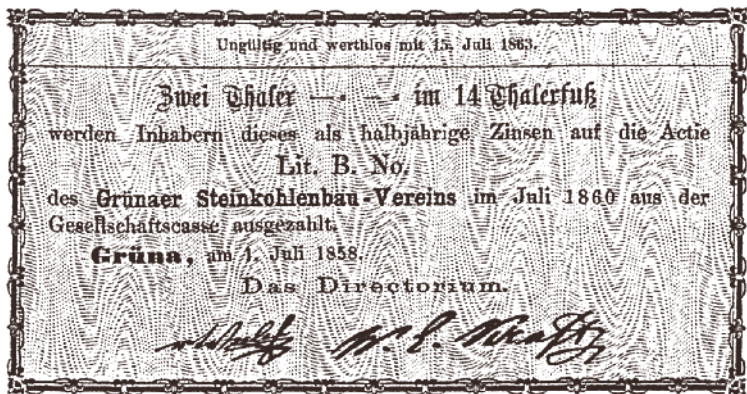 Ungültig und werthlos mit 15. Juli 1863.
Zwei Thaler — • — • im 14 Thalerfuß
werden Inhabern dieses als halbjährige Zinsen auf die Actie
Lit. B. No.
des Grünaer Steinkohlenbau-Vereins im Juli 1860 aus der
Gesellschaftscasse ausgezahlt.
Grüna, am 1. Juli 1858.
Das Directorium.